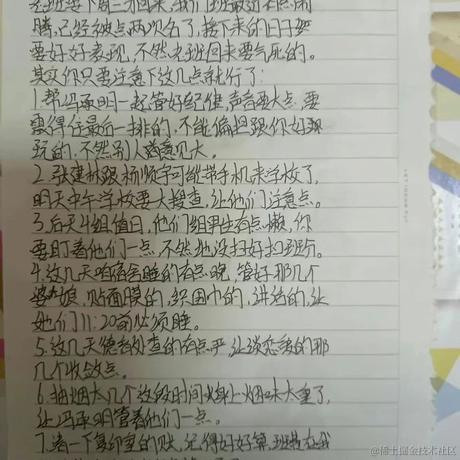 老班要下周三才回来,我们班最近有点闹
腾,已经被点两次名了,接下来的日子要
要好好表现,不然老班回来要气死的。
其实你只要注意下这几点就行了:
1.帮冯承明一起管好纪律,声音要大点,要
震得住最后一排的,不能偏袒跟你好跟
玩的,不然别人总意见大。
2.张建林跟杨顺宇可能带手机来学校了,
明天中午学校要大搜查,让他们注意点。
3.后天4组值日,他们组男生有点懒,你
要盯着他们一点,不然地没扫好扫厕所。
4.这几天咱宿舍睡的有点晚,管好那几个
婆娘,贴面膜的,织围巾的,讲话的,让
她们11:20前必须睡。
5.这几天德育处查的有点严,让谈恋爱的那
几个收敛点。
6.抽烟太几个放段时间身上烟味太重了,
让冯承明管着他们一点。
7.看一下复印室的账,记得好好算,班费在我
@稀土掘金技术社区